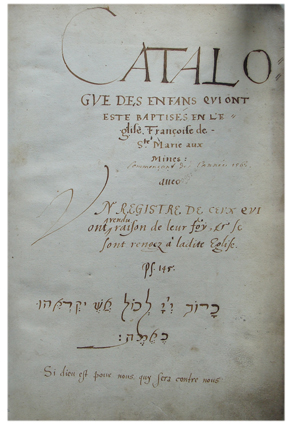 CATALO=
GVE DES ENFANS QVI ONT
ESTE BAPTISES EN L'E
glise Françoise de
Ste Marie aux
Mines:
Commençant de l'année
auec
VN REGISTRE DE CEVX QVI
ont rendu raison de leur foy, et se
sont rengez a ladite Eglise.
Ps. 145.
קרוב יי לכול
Si dieu est pour nous, quy sera contre nous